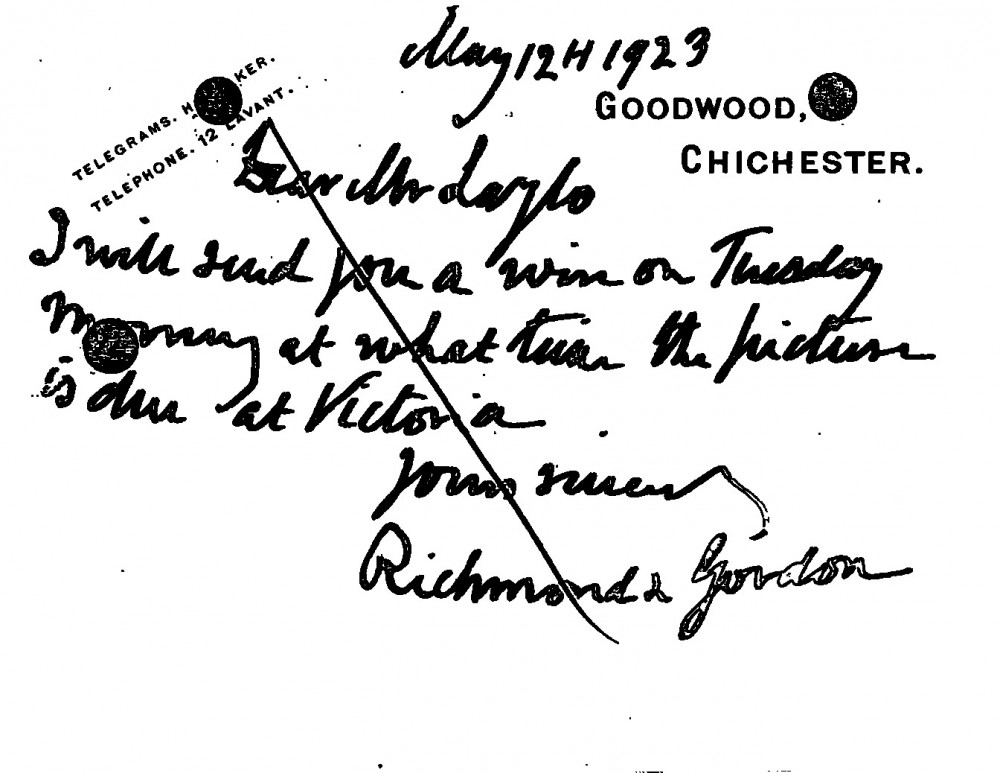 May 12th 1923
TELEGRAMS. H KER.
TELEPHONE. 12 LAVANT.
GOODWOOD,
CHICHESTER.
Dear Mr
I will send you a wire on Tuesday
Morning at what time the picture
is due at Victoria
yours sincerely
Richmond & Gordon